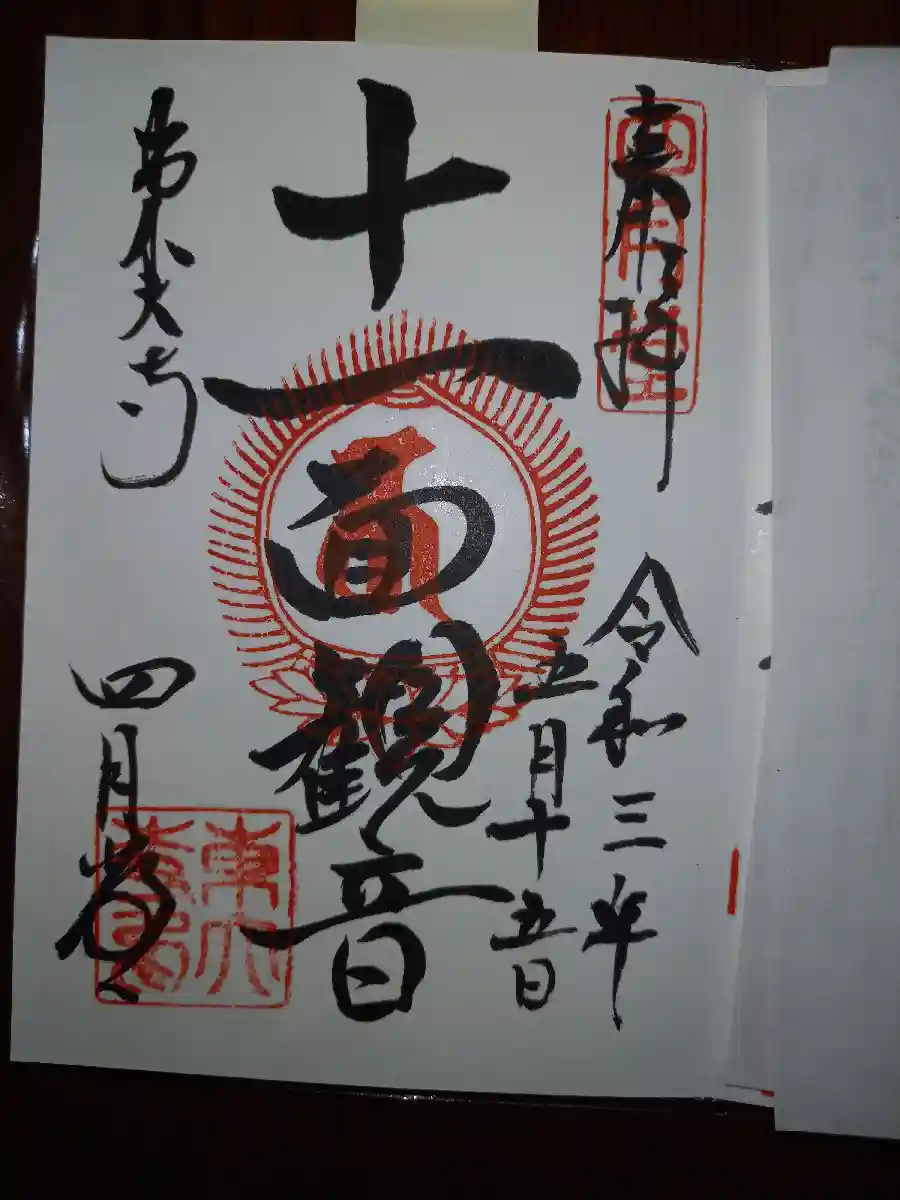 奉拝
令和三年
五月十五日
十一面観音
東大寺
四月堂
四月堂
東大
寺印